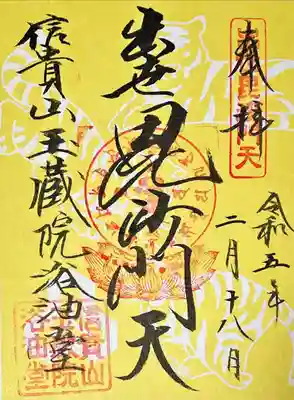 奉拝
令和五年
二月十八日
出世毘沙門天
信貴山玉蔵院浴油堂
信貴山
玉蔵院
浴油堂